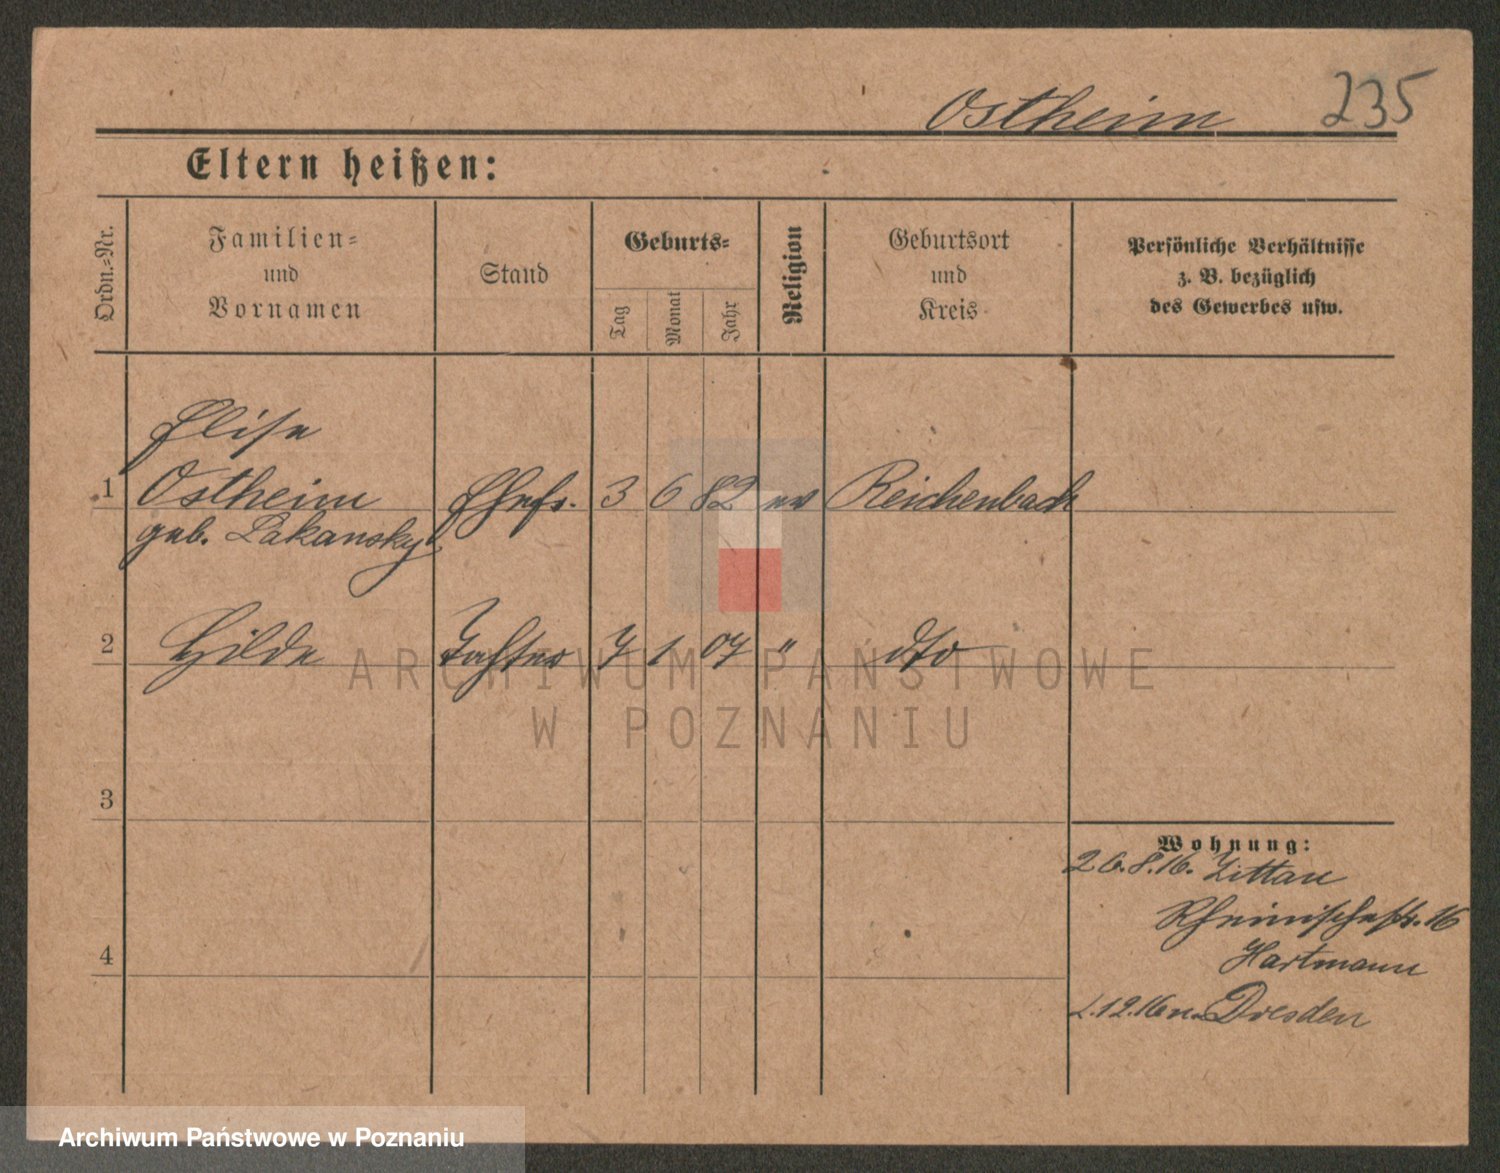 Ostheim 235
Eltern heißen:
Ordn.-Nr.
Familien-
und
Vornamen
Stand
Geburts-
Tag
Monat
Jahr
Religion
Geburtsort
und
Kreis
Persönliche Verhältnisse
z. B. bezüglich
des Gewerbes usw.
Elise
1 Ostheim Ehefr. 3 6 82 ev Reichenbach
geb. Lakansky
2 Hilde Tochter 7 1 07 " dto
ARCHIWUM PAŃSTWOWE
W POZNANIU
3
Wohnung:
26.8.16. Zittau
Rheinischestr. 16
4
Hartmann
1.12.16 n. Dresden
Archiwum Państwowe w Poznaniu